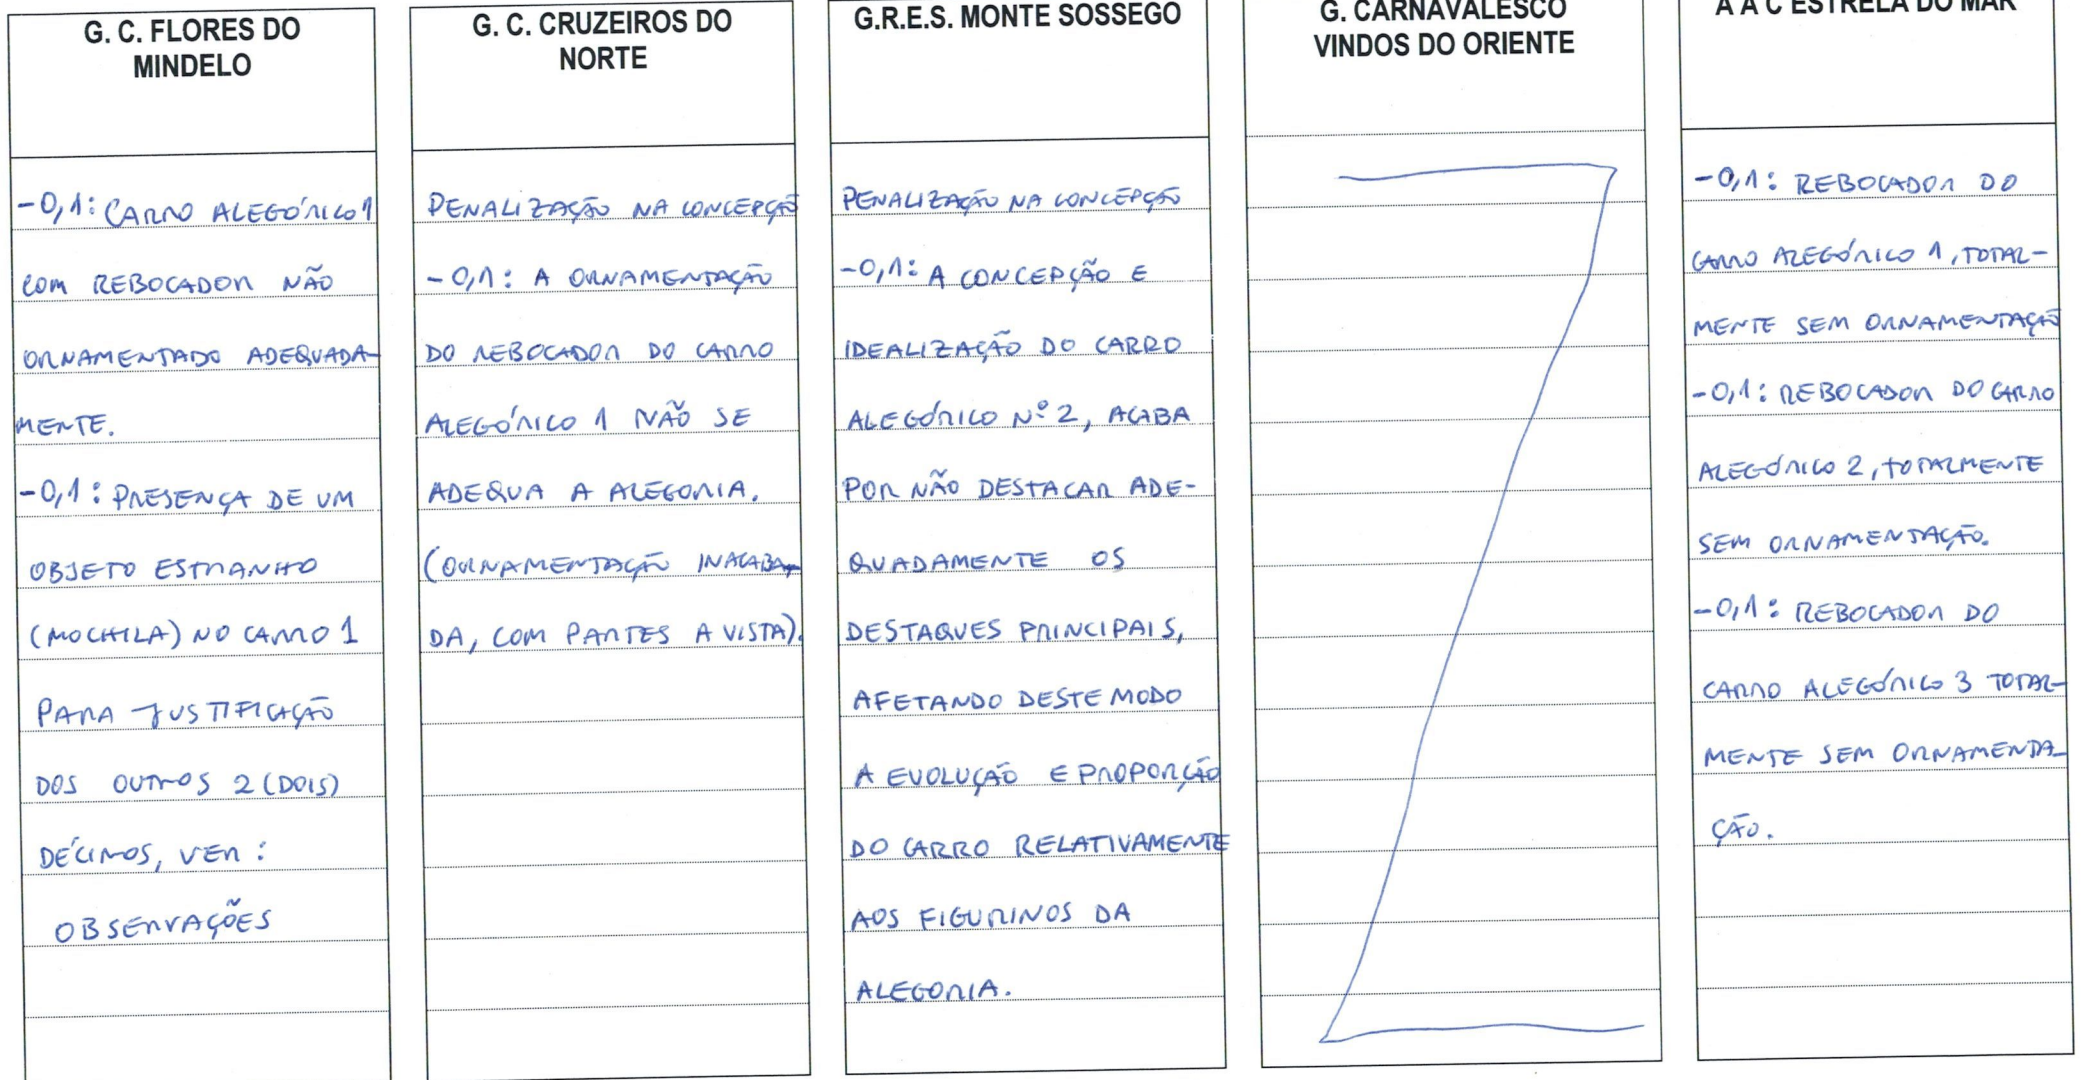 G. C. FLORES DO
MINDELO
-0,1: CARRO ALEGÓRICO 1
COM REBOCADOR NÃO
ORNAMENTADO ADEQUADA-
MENTE.
-0,1: PRESENÇA DE UM
OBJETO ESTRANHO
(MOCHILA) NO CARRO 1
PARA JUSTIFICAÇÃO
DOS OUTROS 2 (DOIS)
DÉCIMOS, VER:
OBSERVAÇÕES
G. C. CRUZEIROS DO
NORTE
PENALIZAÇÃO NA CONCEPÇÃO
-0,1: A ORNAMENTAÇÃO
DO REBOCADOR DO CARRO
ALEGÓRICO 1 NÃO SE
ADEQUA A ALEGORIA.
(ORNAMENTAÇÃO INACABA-
DA, COM PARTES A VISTA).
G.R.E.S. MONTE SOSSEGO
PENALIZAÇÃO NA CONCEPÇÃO
-0,1: A CONCEPÇÃO E
IDEALIZAÇÃO DO CARRO
ALEGÓRICO Nº 2, ACABA
POR NÃO DESTACAR ADE-
QUADAMENTE OS
DESTAQUES PRINCIPAIS,
AFETANDO DESTE MODO
A EVOLUÇÃO E PROPORÇÃO
DO CARRO RELATIVAMENTE
AOS FIGURINOS DA
ALEGORIA.
G. CARNAVALESCO
VINDOS DO ORIENTE
A A C ESTRELA DO MAR
-0,1: REBOCADOR DO
CARRO ALEGÓRICO 1, TOTAL-
MENTE SEM ORNAMENTAÇÃO
-0,1: REBOCADOR DO CARRO
ALEGÓRICO 2, TOTALMENTE
SEM ORNAMENTAÇÃO.
-0,1: REBOCADOR DO
CARRO ALEGÓRICO 3 TOTAL-
MENTE SEM ORNAMENTA-
ÇÃO.